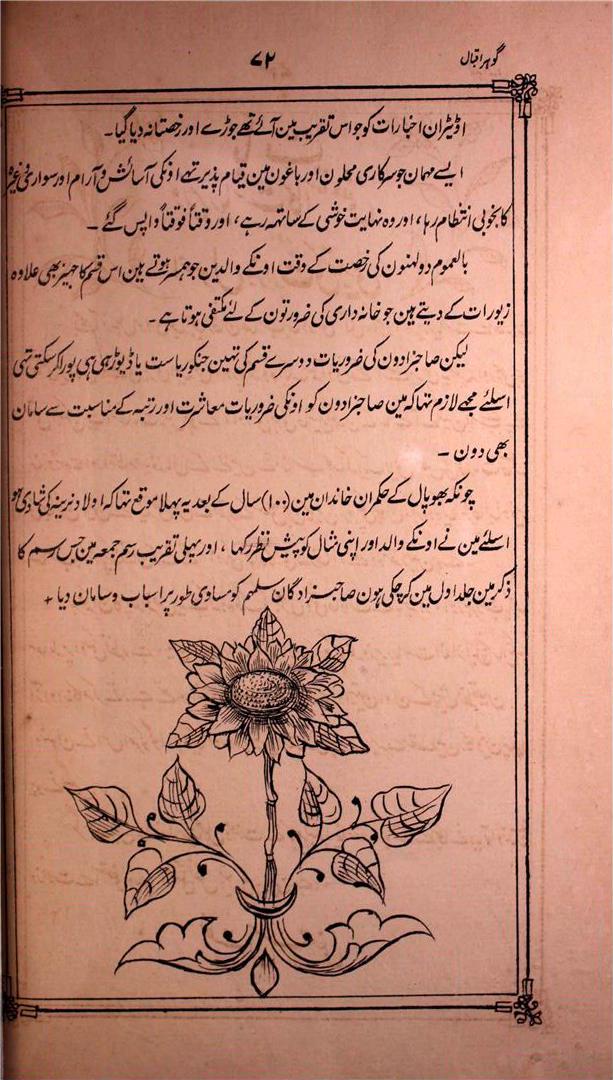 گوہر اقبال
۷۲
اڈیٹران اخبارات کو جو اس تقریب مین آئے تھے جوڑے اور رخصتانہ دیا گیا۔
ایسے مہمان جو سرکاری محلون اور باغون مین قیام پذیر تھے اونکی آسائش و آرام اور سواری وغیرہ
کا بخوبی انتظام رہا، اور وہ نہایت خوشی کے ساتھ رہے، اور وقتاً فوقتاً واپس گئے۔
بالعموم دولہنون کی رخصت کے وقت اونکے والدین جو ہمسر ہوتے ہین اس قسم کا جہیز بھی علاوہ
زیورات کے دیتے ہین جو خانہ داری کی ضرورتون کے لئے مکتفی ہوتا ہے۔
لیکن صاحبزادون کی ضروریات دوسرے قسم کی تہین جنکو ریاست یا ڈیوڑھی ہی پورا کر سکتی تھی
اسلئے مجھے لازم تھا کہ مین صاحبزادون کو اونکی ضروریات معاشرت اور رتبہ کے مناسبت سے سامان
بھی دون۔
چونکہ بھوپال کے حکمران خاندان مین (۱۰۰) سال کے بعد یہ پہلا موقع تھا کہ اولاد نرینہ کی شادی ہو
اسلئے مین نے اونکے والد اور اپنی مثال کو پیش نظر رکھا، اور پہلی تقریب رسم جمعہ مین جس رسم کا
ذکر مین جلد اول مین کر چکی ہون صاحبزادگان سلہم کو مساوی طور پر اسباب و سامان دیا +